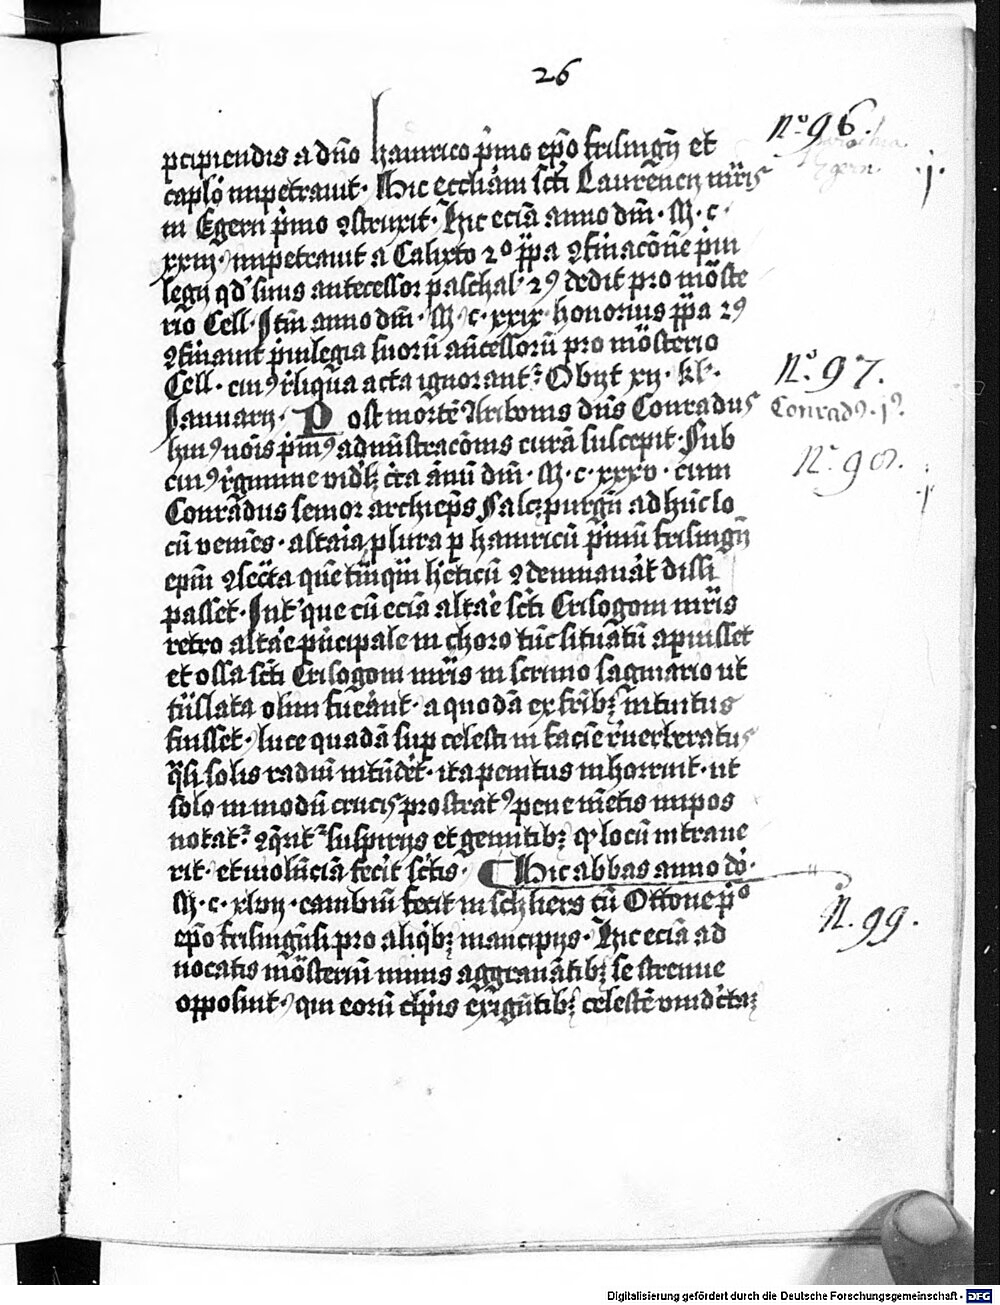 26
pcipiendis a dño hainrico p̃mo ep̃o frisingn̄ et
caplo impetrauit · Hic eccliam sc̄ti Laurency m̃ris
in Egern p̃mo ꝯstruxit · Hic eciā anno dm̄ · M · c ·
xxiij · impetrauit a Calixto 2º pp̃a ꝯfirmacōne p̃ui
legij qd' suus antecessor paschal' 2ꝰ dedit pro mōste
rio Cell · Itm̄ anno dm̄ · M · c · xxix · honorius pp̃a 2ꝰ
ꝯfirmauit p̃uilegia suorū an̄cessorū pro mōsterio
Cell · cuiꝰ r̃liqua acta ignorant᷑ Obijt xij · kl' ·
January · Post mortē Aribonis dn̄s Conradus
huiꝰ nōis p̃mꝰ adm̄istracōnis curā suscepit · Sub
cuiꝰ r̃gimine videlz cc̃a annū dm̄ · M · c · xxxv · cum
Conradus senior archiep̃s Salczpurgn̄ ad hūc lo
cū venie̅s · altaria plura p hainricū p̃mū frisingn̄
ep̃m ꝯsecta que tm̄qm̄ h̃eticū ꝯdemnauāt dissi
passet · Int' que cū eciā altare sc̄ti Crisogoni m̃ris
retro altare p̃ncipale in choro tūc situatū apuisset
et ossa sc̄ti Crisogoni m̃ris in scrinio sagmario ut
tn̄slata olim fuerāt · a quodā ex fr̄ibz intuitus
fuisset · luce quadā sup celesti in facie r̃uerberatus
q̃si solis radiū intūdet · ita penitus inhorruit · ut
solo in modū crucis prostratꝰ pene mētis impos
notat᷑ ꝯq̃rit᷑ suspirijs et gemitibz qr locū intraue
rit · et violēciā fecit sc̄tis · Hic abbas anno dn̄i ·
M · c · xlvij · cambiū fecit in schliers cū Ottone p̃º
ep̃o frisingn̄si pro aliq̃bz mancipijs · Hic eciā ad
uocatis mōsteriū nimis aggrauātibz se strenue
opposuit · qui eorū culpis exigētibz celestē vindictaz
Nº. 96.
Egern.
j.
Nº. 97.
Conradꝰ. jꝰ.
Nº. 98.
j
N. 99.
Digitalisierung gefördert durch die Deutsche Forschungsgemeinschaft - DFG